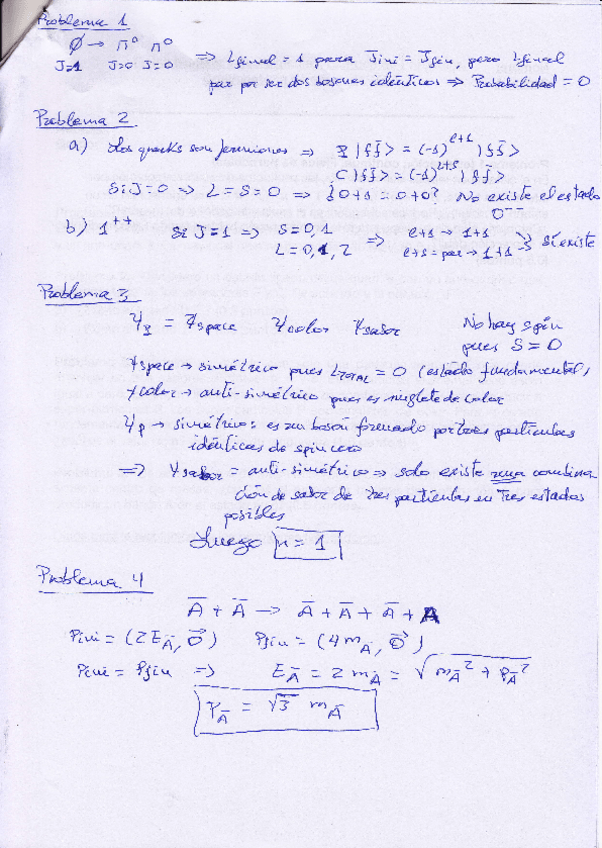 Problema 1
φ → π⁰ π⁰
J=1 J=0 J=0 ⇒ Lfinal = 1 para Jini = Jfin, pero Lfinal
par por ser dos bosones idénticos ⇒ Probabilidad = 0
Problema 2
a) Los quarks son fermiones ⇒ P |f f̄> = (-1)^{l+1} |f f̄>
C |f f̄> = (-1)^{L+S} |f f̄>
Si J=0 ⇒ L = S = 0 ⇒ ¿0+1 = 0+0? No existe el estado
0⁻⁻
b) 1⁺⁺ Si J=1 ⇒ S = 0,1 ⇒ l+1 → 1+1 Sí existe
L = 0,1,2 l+s = par → 1+1
Problema 3
Ψ = Ψspace Ψcolor Ψsabor No hay spín
pues S = 0
Ψspace → simétrico pues L_TOTAL = 0 (estado fundamental)
Ψcolor → anti-simétrico pues es singlete de color
Ψp → simétrico: es un bosón formado por tres partículas
idénticas de spin cero
⇒ Ψsabor = anti-simétrico ⇒ solo existe una combina
ción de sabor de tres partículas en tres estados
posibles
Luego n = 1
Problema 4
Ā + Ā → Ā + Ā + Ā + A
Pini = (2E_Ā, 0⃗) Pfin = (4m_Ā, 0⃗)
Pini = Pfin ⇒ E_Ā = 2 m_Ā = √(m_Ā² + p_Ā²)
p_Ā = √3 m_Ā